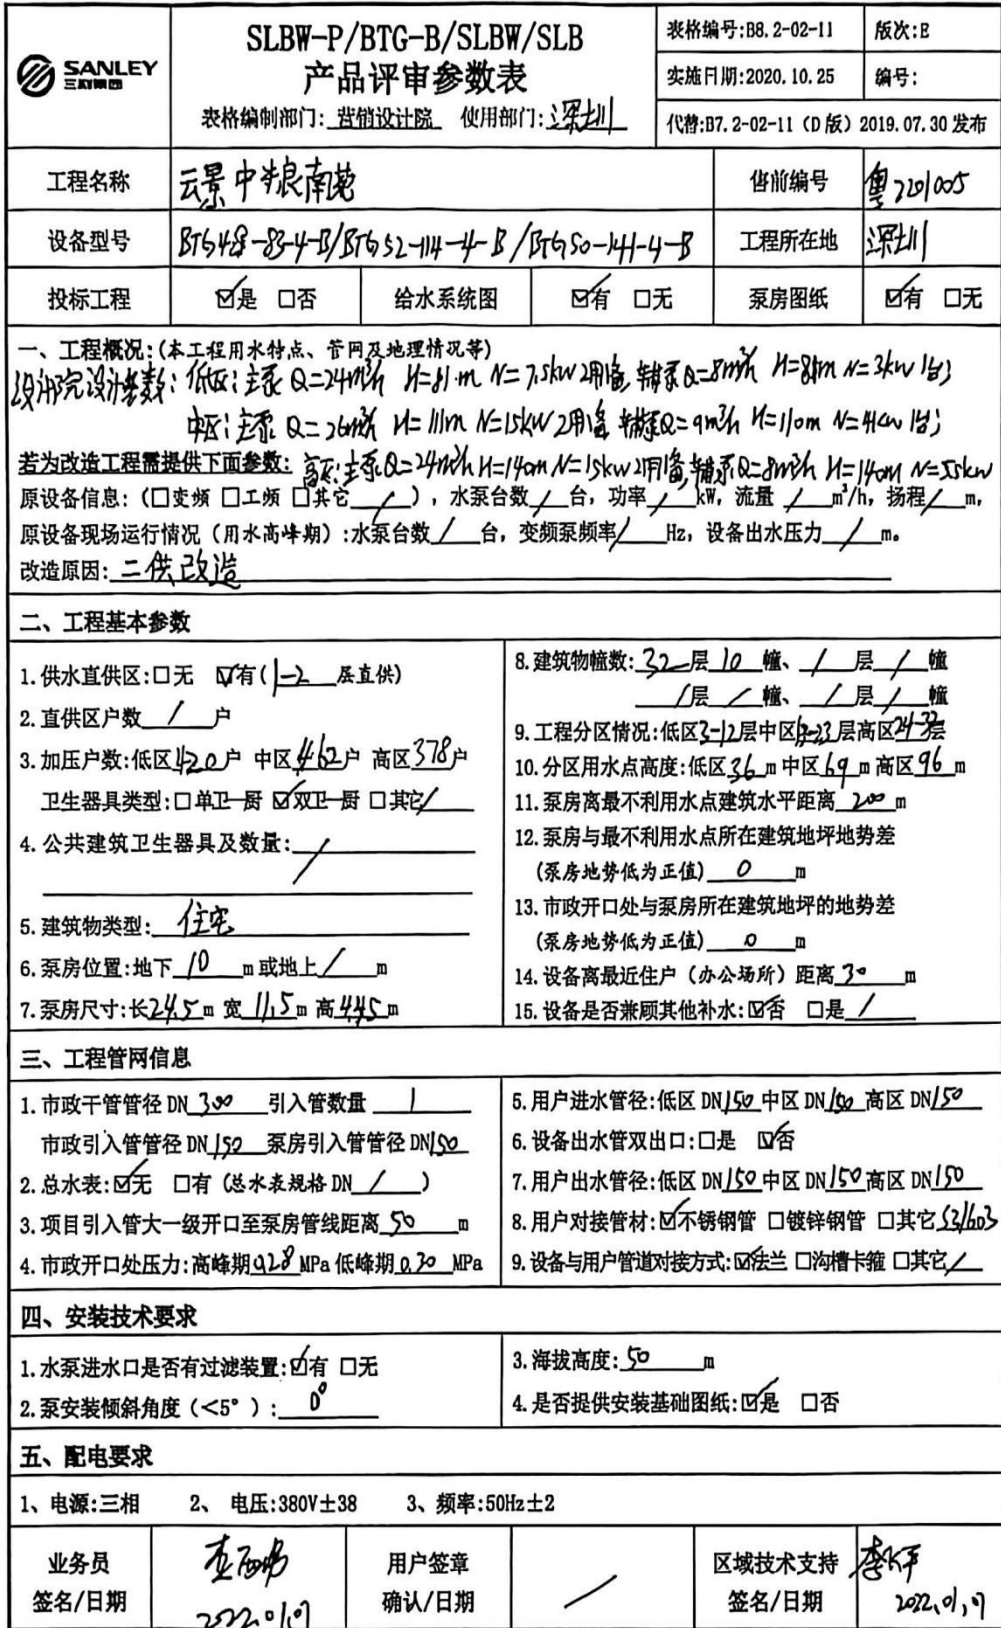 SANLEY
三利集团
SLBW-P/BTG-B/SLBW/SLB
产品评审参数表
表格编制部门: 营销设计院 使用部门: 深圳
表格编号:B8.2-02-11 版次:E
实施日期:2020.10.25 编号:
代替:B7.2-02-11 (D版) 2019.07.30 发布
工程名称 云景中 南苑 售前编号 粤2201005
设备型号 BTG48-83-4-B/BTG52-114-4-B/BTG50-141-4-B 工程所在地 深圳
投标工程 ☑是 □否 给水系统图 ☑有 □无 泵房图纸 ☑有 □无
一、工程概况:(本工程用水特点、管网及地理情况等)
设计院设计参数: 低区: 主泵 Q=24m³/h H=81m N=7.5kw 2用1备, 辅泵Q=8m³/h H=81m N=3kw 1台;
中区: 主泵 Q=26m³/h H=111m N=15kw 2用1备 辅泵Q=9m³/h H=110m N=4kw 1台;
若为改造工程需提供下面参数: 高区: 主泵Q=24m³/h H=140m N=15kw 2用1备, 辅泵Q=8m³/h H=140m N=5.5kw
原设备信息: (□变频 □工频 □其它 / ), 水泵台数 / 台, 功率 / kW, 流量 / m³/h, 扬程 / m,
原设备现场运行情况 (用水高峰期):水泵台数 / 台, 变频泵频率 / Hz, 设备出水压力 / m。
改造原因: 二供改造
二、工程基本参数
1.供水直供区:□无 ☑有(1-2 层直供)
2.直供区户数 / 户
3.加压户数:低区420户 中区462户 高区378户
卫生器具类型:□单卫一厨 ☑双卫一厨 □其它/
4.公共建筑卫生器具及数量: /
5.建筑物类型: 住宅
6.泵房位置:地下 10 m或地上 / m
7.泵房尺寸:长24.5m 宽 11.5m 高4.45m
8.建筑物幢数: 32 层 10 幢、 / 层 / 幢
/ 层 / 幢、 / 层 / 幢
9.工程分区情况:低区3-12层中区13-23层高区24-32层
10.分区用水点高度:低区36m中区69m高区96m
11.泵房离最不利用水点建筑水平距离 200 m
12.泵房与最不利用水点所在建筑地坪地势差
(泵房地势低为正值) 0 m
13.市政开口处与泵房所在建筑地坪的地势差
(泵房地势低为正值) 0 m
14.设备离最近住户 (办公场所) 距离 30 m
15.设备是否兼顾其他补水:☑否 □是 /
三、工程管网信息
1.市政干管管径 DN 300 引入管数量 1
市政引入管管径 DN 150 泵房引入管管径 DN150
2.总水表:☑无 □有 (总水表规格 DN / )
3.项目引入管大一级开口至泵房管线距离 50 m
4.市政开口处压力:高峰期0.28MPa 低峰期 0.30 MPa
5.用户进水管径:低区 DN150 中区 DN150 高区 DN150
6.设备出水管双出口:□是 ☑否
7.用户出水管径:低区 DN150 中区 DN150 高区 DN150
8.用户对接管材:☑不锈钢管 □镀锌钢管 □其它 S31603
9.设备与用户管道对接方式:☑法兰 □沟槽卡箍 □其它 /
四、安装技术要求
1.水泵进水口是否有过滤装置:☑有 □无
2.泵安装倾斜角度 (<5°): 0°
3.海拔高度: 50 m
4.是否提供安装基础图纸:☑是 □否
五、配电要求
1、电源:三相 2、 电压:380V±38 3、频率:50Hz±2
业务员
签名/日期
2022.01.07
用户签章
确认/日期
/
区域技术支持
签名/日期
2022.01.07